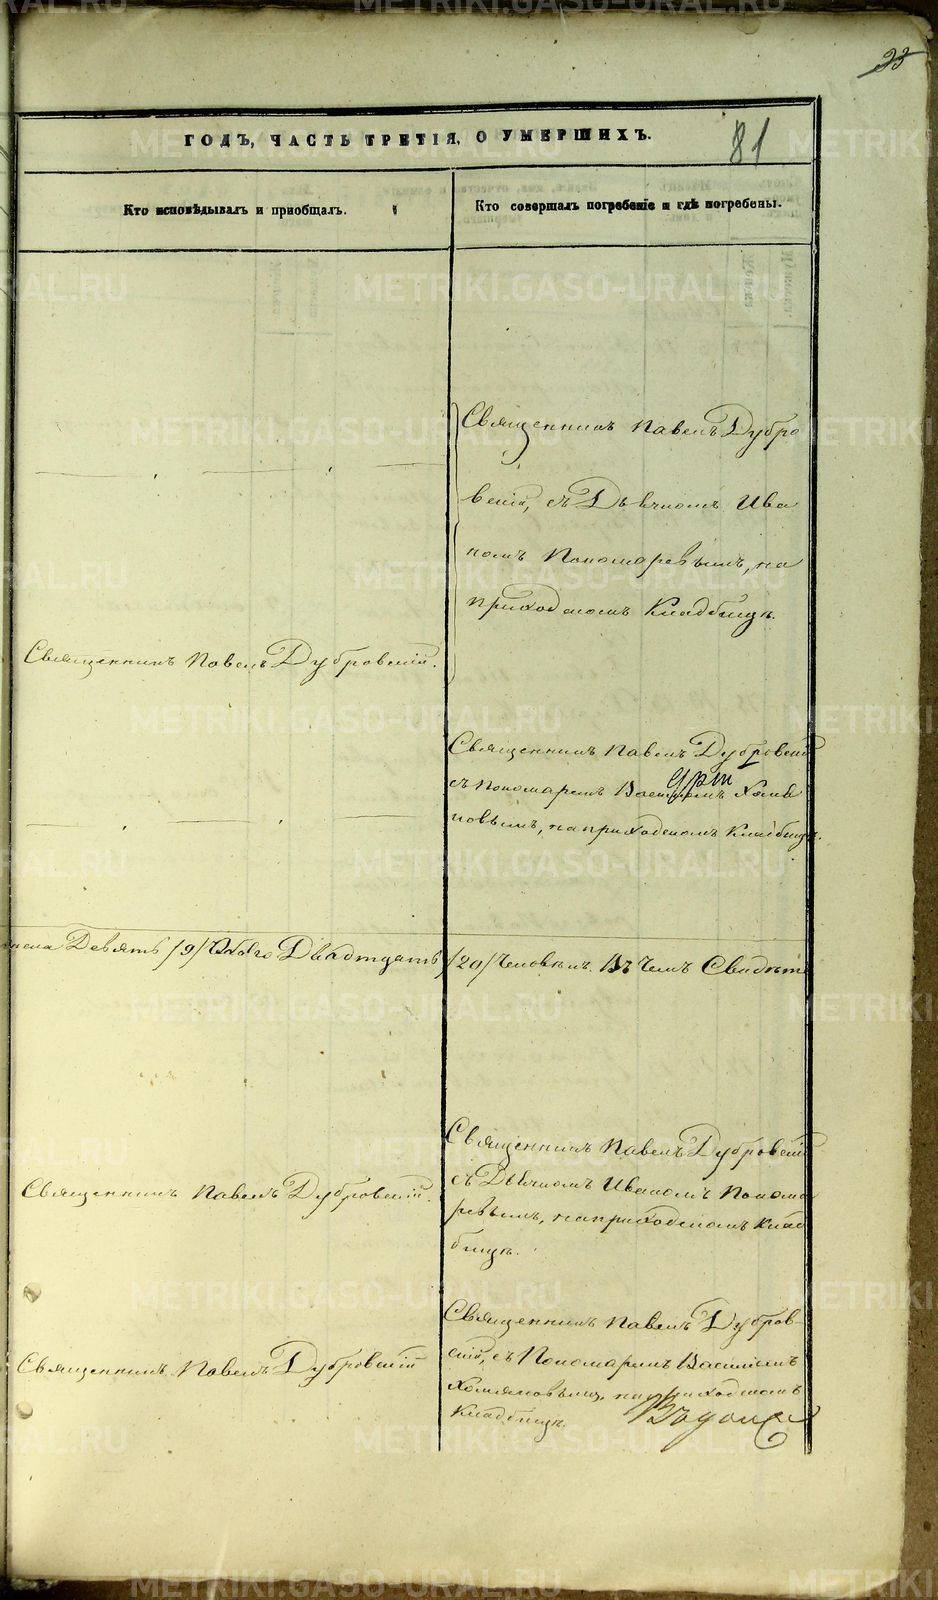 23
81
ГОДЪ, ЧАСТЬ ТРЕТІЯ, О УМЕРШИХЪ.
Кто исповѣдывалъ и пріобщалъ.
Кто совершалъ погребеніе и гдѣ погребены.
Священникъ Павелъ Дубро
вскій, съ Дьячкомъ Ива
номъ Пономаревымъ, на
приходскомъ Кладбищѣ.
Священникъ Павелъ Дубровскій.
Священникъ Павелъ Дубровскій
съ Пономаремъ Василіемъ Хомя
ковымъ, на приходскомъ Кладбищѣ.
пола Девять /9/ Обоего Двадцать /20/ Человѣкъ. Въ Чемъ Свидѣте
Священникъ Павелъ Дубровскій.
Священникъ Павелъ Дубровскій
съ Дьячкомъ Иваномъ Понома
ревымъ, на приходскомъ Клад
бищѣ.
Священникъ Павелъ Дубровскій
Священникъ Павелъ Дубров-
скій, съ Пономаремъ Василіемъ
Хомяковымъ, на приходскомъ
Кладбищѣ.
METRIKI.GASO-URAL.RU